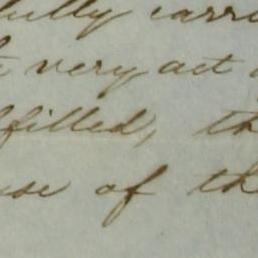 fully carri
very act
filled, th
se of th